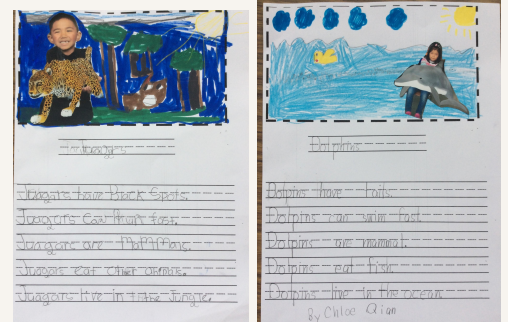 Juagars
Juagars have Black Spots.
Juagars can Run fast.
Juagars are MaMMals.
Juagars eat other animals.
Juagars live in the Jungle.
Dolphins
Dolpins have tails.
Dolpins can swim fast.
Dolpins are mammal.
Dolpins eat fish.
Dolpins live in the ocean.
By Chloe Qian